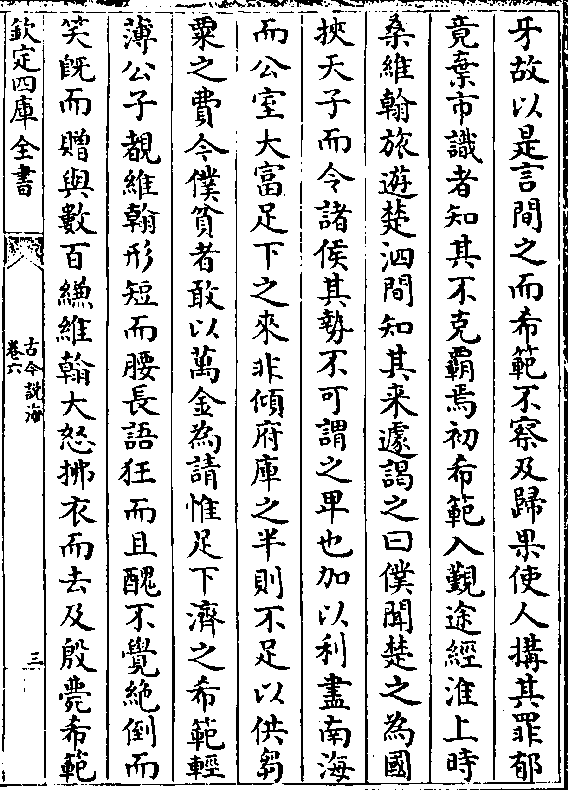 牙故以是言間之而希範不察及歸果使人搆其罪郁
竟棄市識者知其不克霸焉初希範入覲途經淮上時
桑維翰旅遊楚泗間知其来遽謁之曰僕聞楚之為國
挾天子而令諸侯其勢不可謂之卑也加以利盡南海
而公室大富足下之來非傾府庫之半則不足以供芻
粟之費今僕貧者敢以萬金為請惟足下濟之希範輕
薄公子覩維翰形短而腰長語狂而且醜不覺絶倒而
笑旣而贈與數百縑維翰大怒拂衣而去及殷薨希範
欽定四庫全書
古今説海
卷六
三